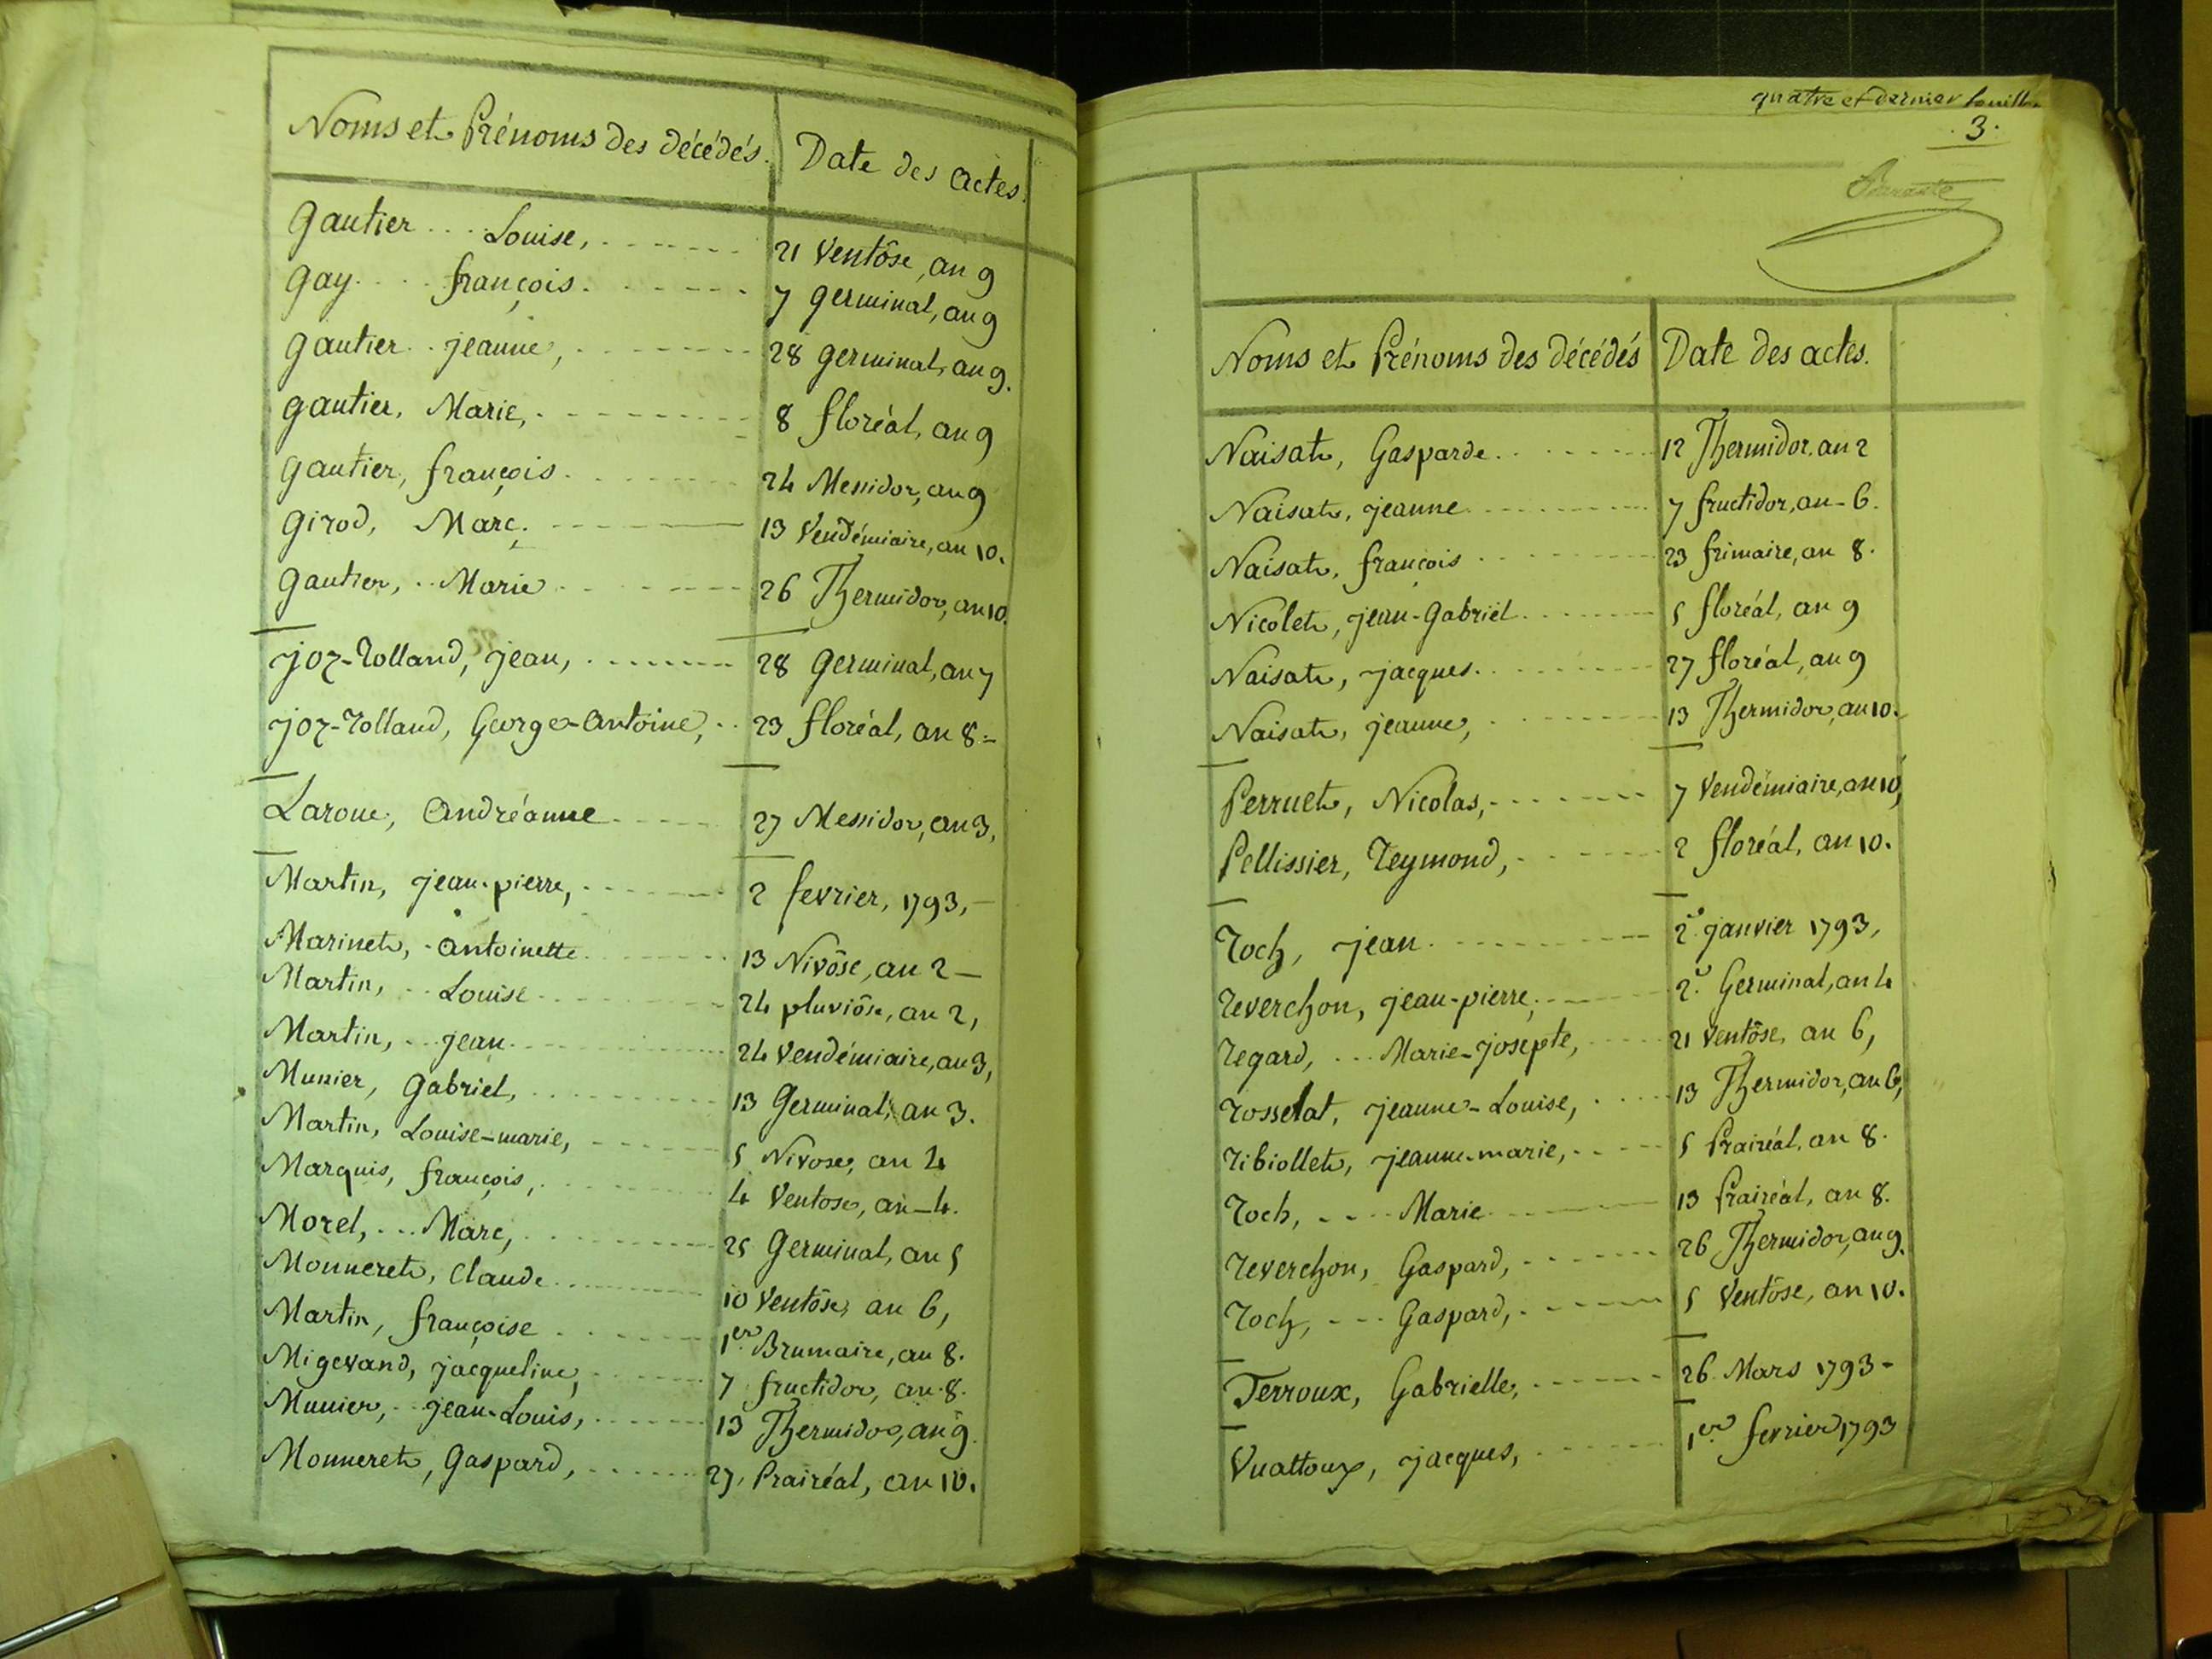 Noms et Prénoms des décédés. Date des actes.
Gautier .... Louise, ....... 21 Ventôse, an 9
Gay .... françois ....... 7 germinal, an 9
Gautier .. jeanne, ....... 28 germinal, an 9.
gautier, Marie, ....... 8 floréal, an 9
gautier, françois ....... 24 Messidor, an 9
Girod, Marc. ....... 13 Vendémiaire, an 10.
Gautier, .. Marie ....... 26 Thermidor, an 10.
joz-Rolland, jean, ....... 28 Germinal, an 7
joz-Rolland, George-Antoine, .. 23 floréal, an 8-
Laroue, Andréanne ....... 27 Messidor, an 3,
Martin, jean-pierre, ....... 2 fevrier, 1793,-
Marinet, - Antoinette ....... 13 Nivôse, an 2-
Martin, ... Louise ....... 24 pluviôse, an 2,
Martin, ... jean ....... 24 Vendémiaire, an 3,
Munier, Gabriel, ....... 13 Germinal, an 3.
Martin, Louise-marie, ....... 5 Nivose, an 4
Marquis, françois, ....... 4 Ventose, an-4.
Morel, ... Marc, ....... 25 Germinal, an 5
Monneret, Claude ....... 10 Ventôse, an 6,
Martin, françoise ....... 1er Brumaire, an 8.
Migevand, jacqueline, ....... 7 fructidor, an 8.
Munier, - jean-Louis, ....... 13 Thermidor, an 9.
Monneret, Gaspard, ....... 27, Prairéal, an 10.
quatre et dernier feuillet
. 3.
Noms et Prénoms des décédés Date des actes.
Naisat, Gasparde ....... 12 Thermidor, an 2
Naisat, jeanne ....... 7 fructidor, an-6.
Naisat, françois ....... 23 frimaire, an 8.
Nicolet, jean-Gabriel ....... 5 floréal, an 9
Naisat, jacques ....... 27 floréal, an 9
Naisat, jeanne, ....... 13 Thermidor, an 10.
Perruet, Nicolas, ....... 7 Vendémiaire, an 10,
Pellissier, Reymond, ....... 2 floréal, an 10.
Roch, jean ....... 2e. janvier 1793,
Reverchon, jean-pierre, ....... 2e. Germinal, an 4
Regard, ... Marie-josepte, ....... 21 Ventôse, an 6,
Rosselat, jeanne-Louise, ....... 13 Thermidor, an 6,
Ribiollet, jeanne-marie, ....... 5 Prairéal, an 8.
Roch, .... Marie ....... 13 Prairéal, an 8.
Reverchon, Gaspard, ....... 26 Thermidor, an 9.
Roch, .... Gaspard, ....... 5 Ventôse, an 10.
Terroux, Gabrielle, ....... 26. Mars 1793-
Vuattoux, jacques, ....... 1er. fevrier 1793